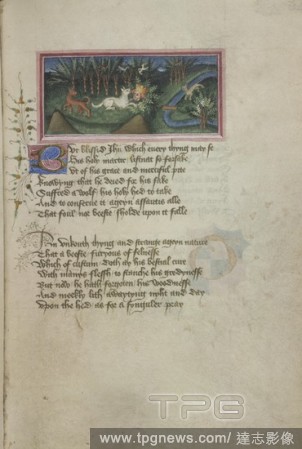 But blissid Ihu which every thyng may se
His holy martir list nat so forsake
But of his grace and merciful pite
knowyng that he deied for his sake
Suffred a wolf his holy hed to take
And to conserve it ageyn assautis alle
That foul nor beeste sholde upon it falle
An unkouth thyng and straunge ageyn nature
That a beeste furyous of felnesse
Which of custum doth ay his bestial cure
With mannys flessh to staunche his gredynesse
But now he hath forgoten his woodnesse
And meekly lith awaytyng nyght and day
Upon the hed as for a synguler pray
TPG
www.tpgnews.com/ 達志影像